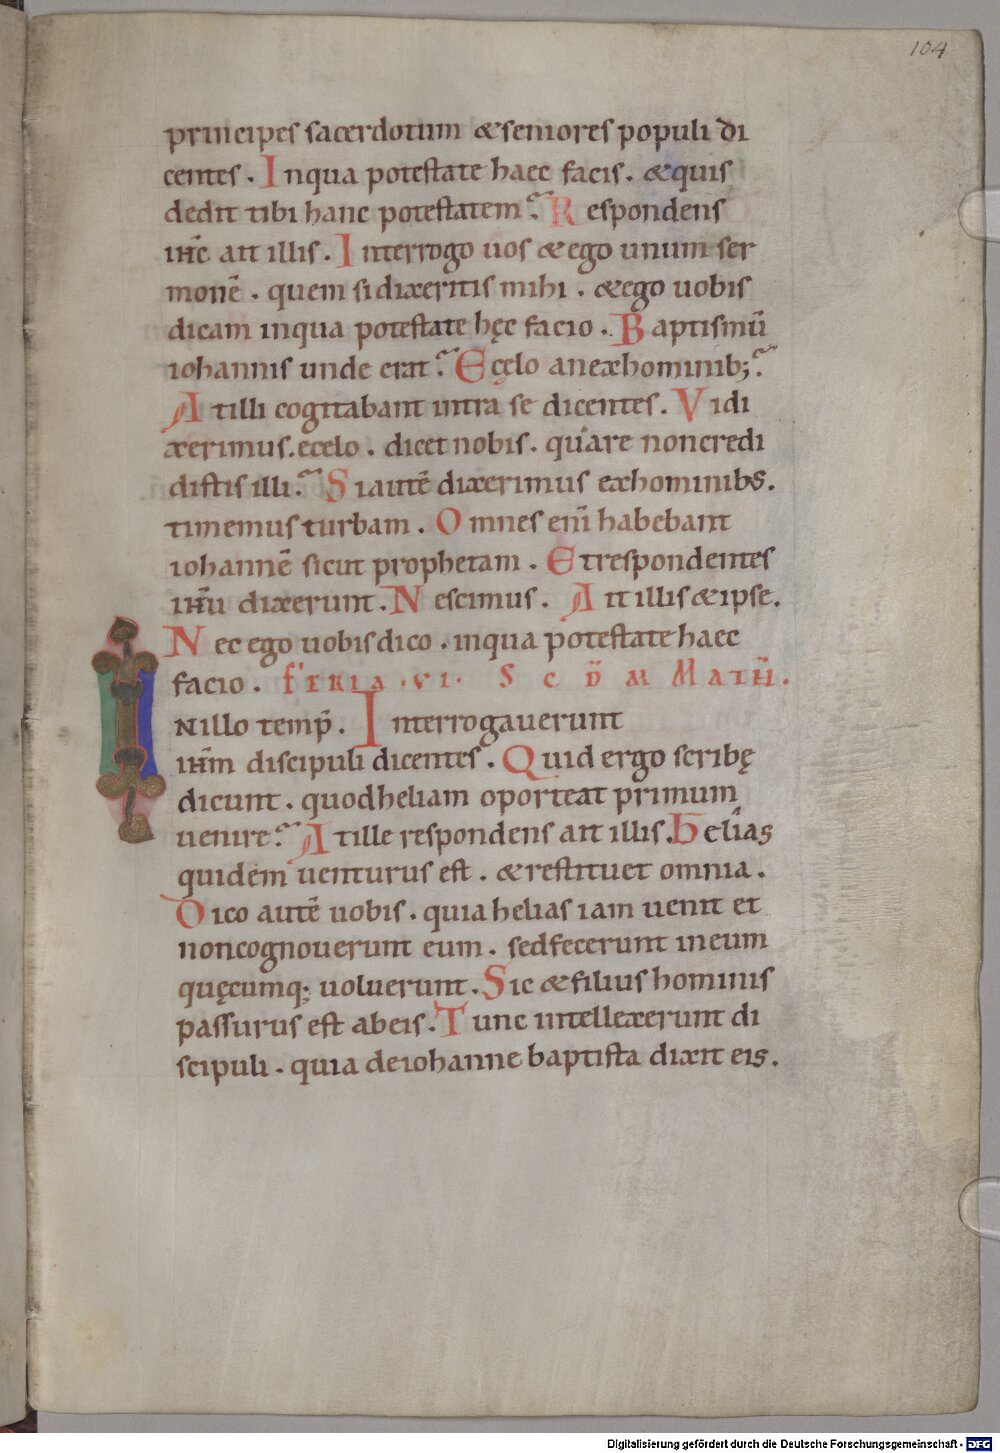 104
principes sacerdotum & seniores populi di
centes . Inqua potestate haec facis . & quis
dedit tibi hanc potestatem? Respondens
ihc̄ ait illis . Interrogo uos & ego unum ser
monē . quem si dixeritis mihi . & ego uobis
dicam inqua potestate hęc facio . Baptismū
iohannis unde erat? Ecęlo an exhominib;?
At illi cogitabant intra se dicentes . Vi di
xerimus . ecelo . dicet nobis . quare noncredi
distis illi? Siautē dixerimus exhominibs .
timemus turbam . Omnes eni̅ habebant
iohannē sicut prophetam . Et respondentes
ihū dixerunt . Nescimus . Ait illis & ipse .
Nec ego uobis dico . inqua potestate haec
facio . FERIA . VI . SCDM MATH̄ .
Nillo temp̄ . Interrogaverunt
ihm̄ discipuli dicentes . Quid ergo scribę
dicunt . quod heliam oporteat primum
uenire? At ille respondens ait illis . helias
quidem uenturus est . & restituet omnia .
Dico autē uobis . quia helias iam uenit et
noncognouerunt eum . sed fecerunt ineum
quęcumq; uoluerunt . Sic & filius hominis
passurus est abeis . Tunc intellexerunt di
scipuli . quia deiohanne baptista dixit eis .
Digitalisierung gefördert durch die Deutsche Forschungsgemeinschaft - DFG